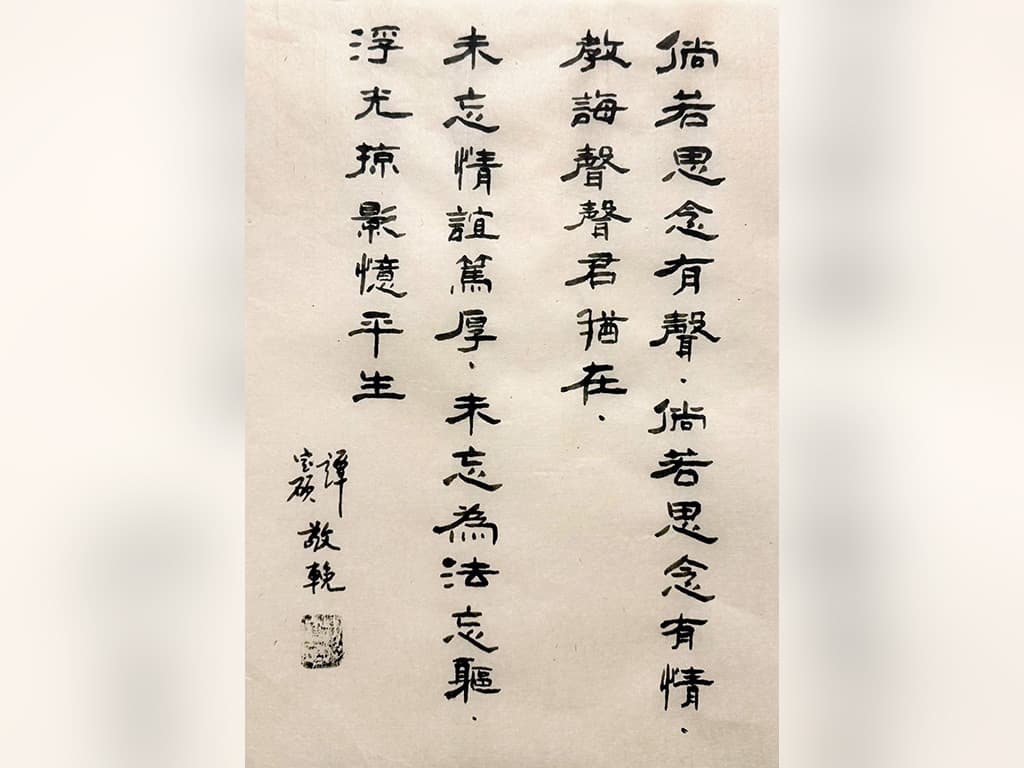 倘若思念有聲．倘若思念有情．
教誨聲聲君猶在．
未忘情誼篤厚．未忘為法忘軀．
浮光掠影憶平生
譚
宝碩
敬輓